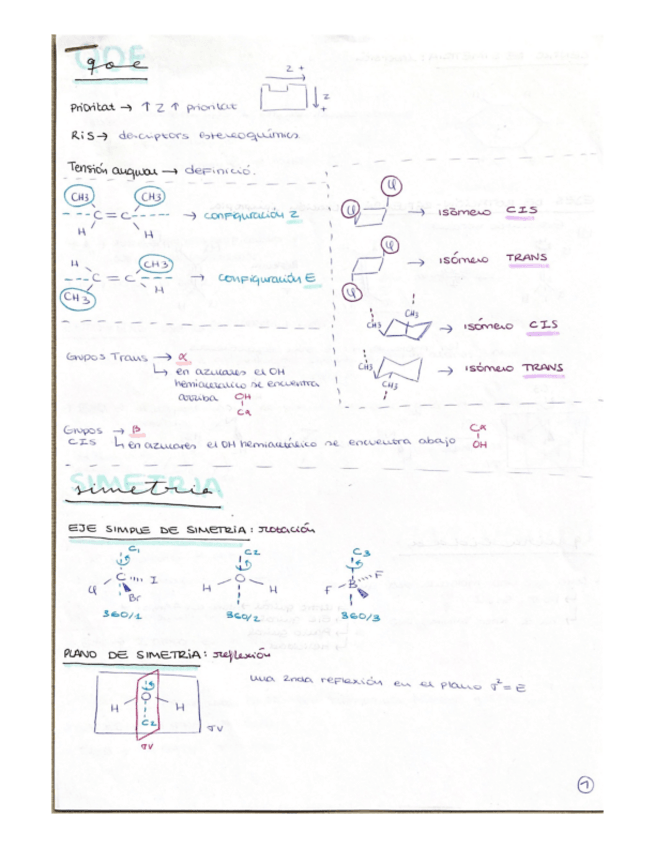 qoe
Z +
Prioritat → ↑ Z ↑ prioritat
Z
+
R i S → descriptors estereoquímics
Tensión angular → definició.
CH3 CH3
C = C → configuración Z
H H
H CH3
C = C → configuración E
CH3 H
Cl
Cl → isómero CIS
Cl
→ isómero TRANS
Cl
CH3
CH3 → isómero CIS
CH3 → isómero TRANS
CH3
Grupos Trans → α
↳ en azucares el OH
hemiacetálico se encuentra
arriba OH
CA
Grupos → β
CIS ↳ en azucares el OH hemiacetálico se encuentra abajo
CA
OH
SIMETRIA
simetria
EJE SIMPLE DE SIMETRIA: rotación
C1 C2 C3
C I O B F
Cl Br H H F
360/1 360/2 360/3
PLANO DE SIMETRIA: reflexión
una 2nda reflexión en el plano σ² = E
H O H
C2
σV
σV
1